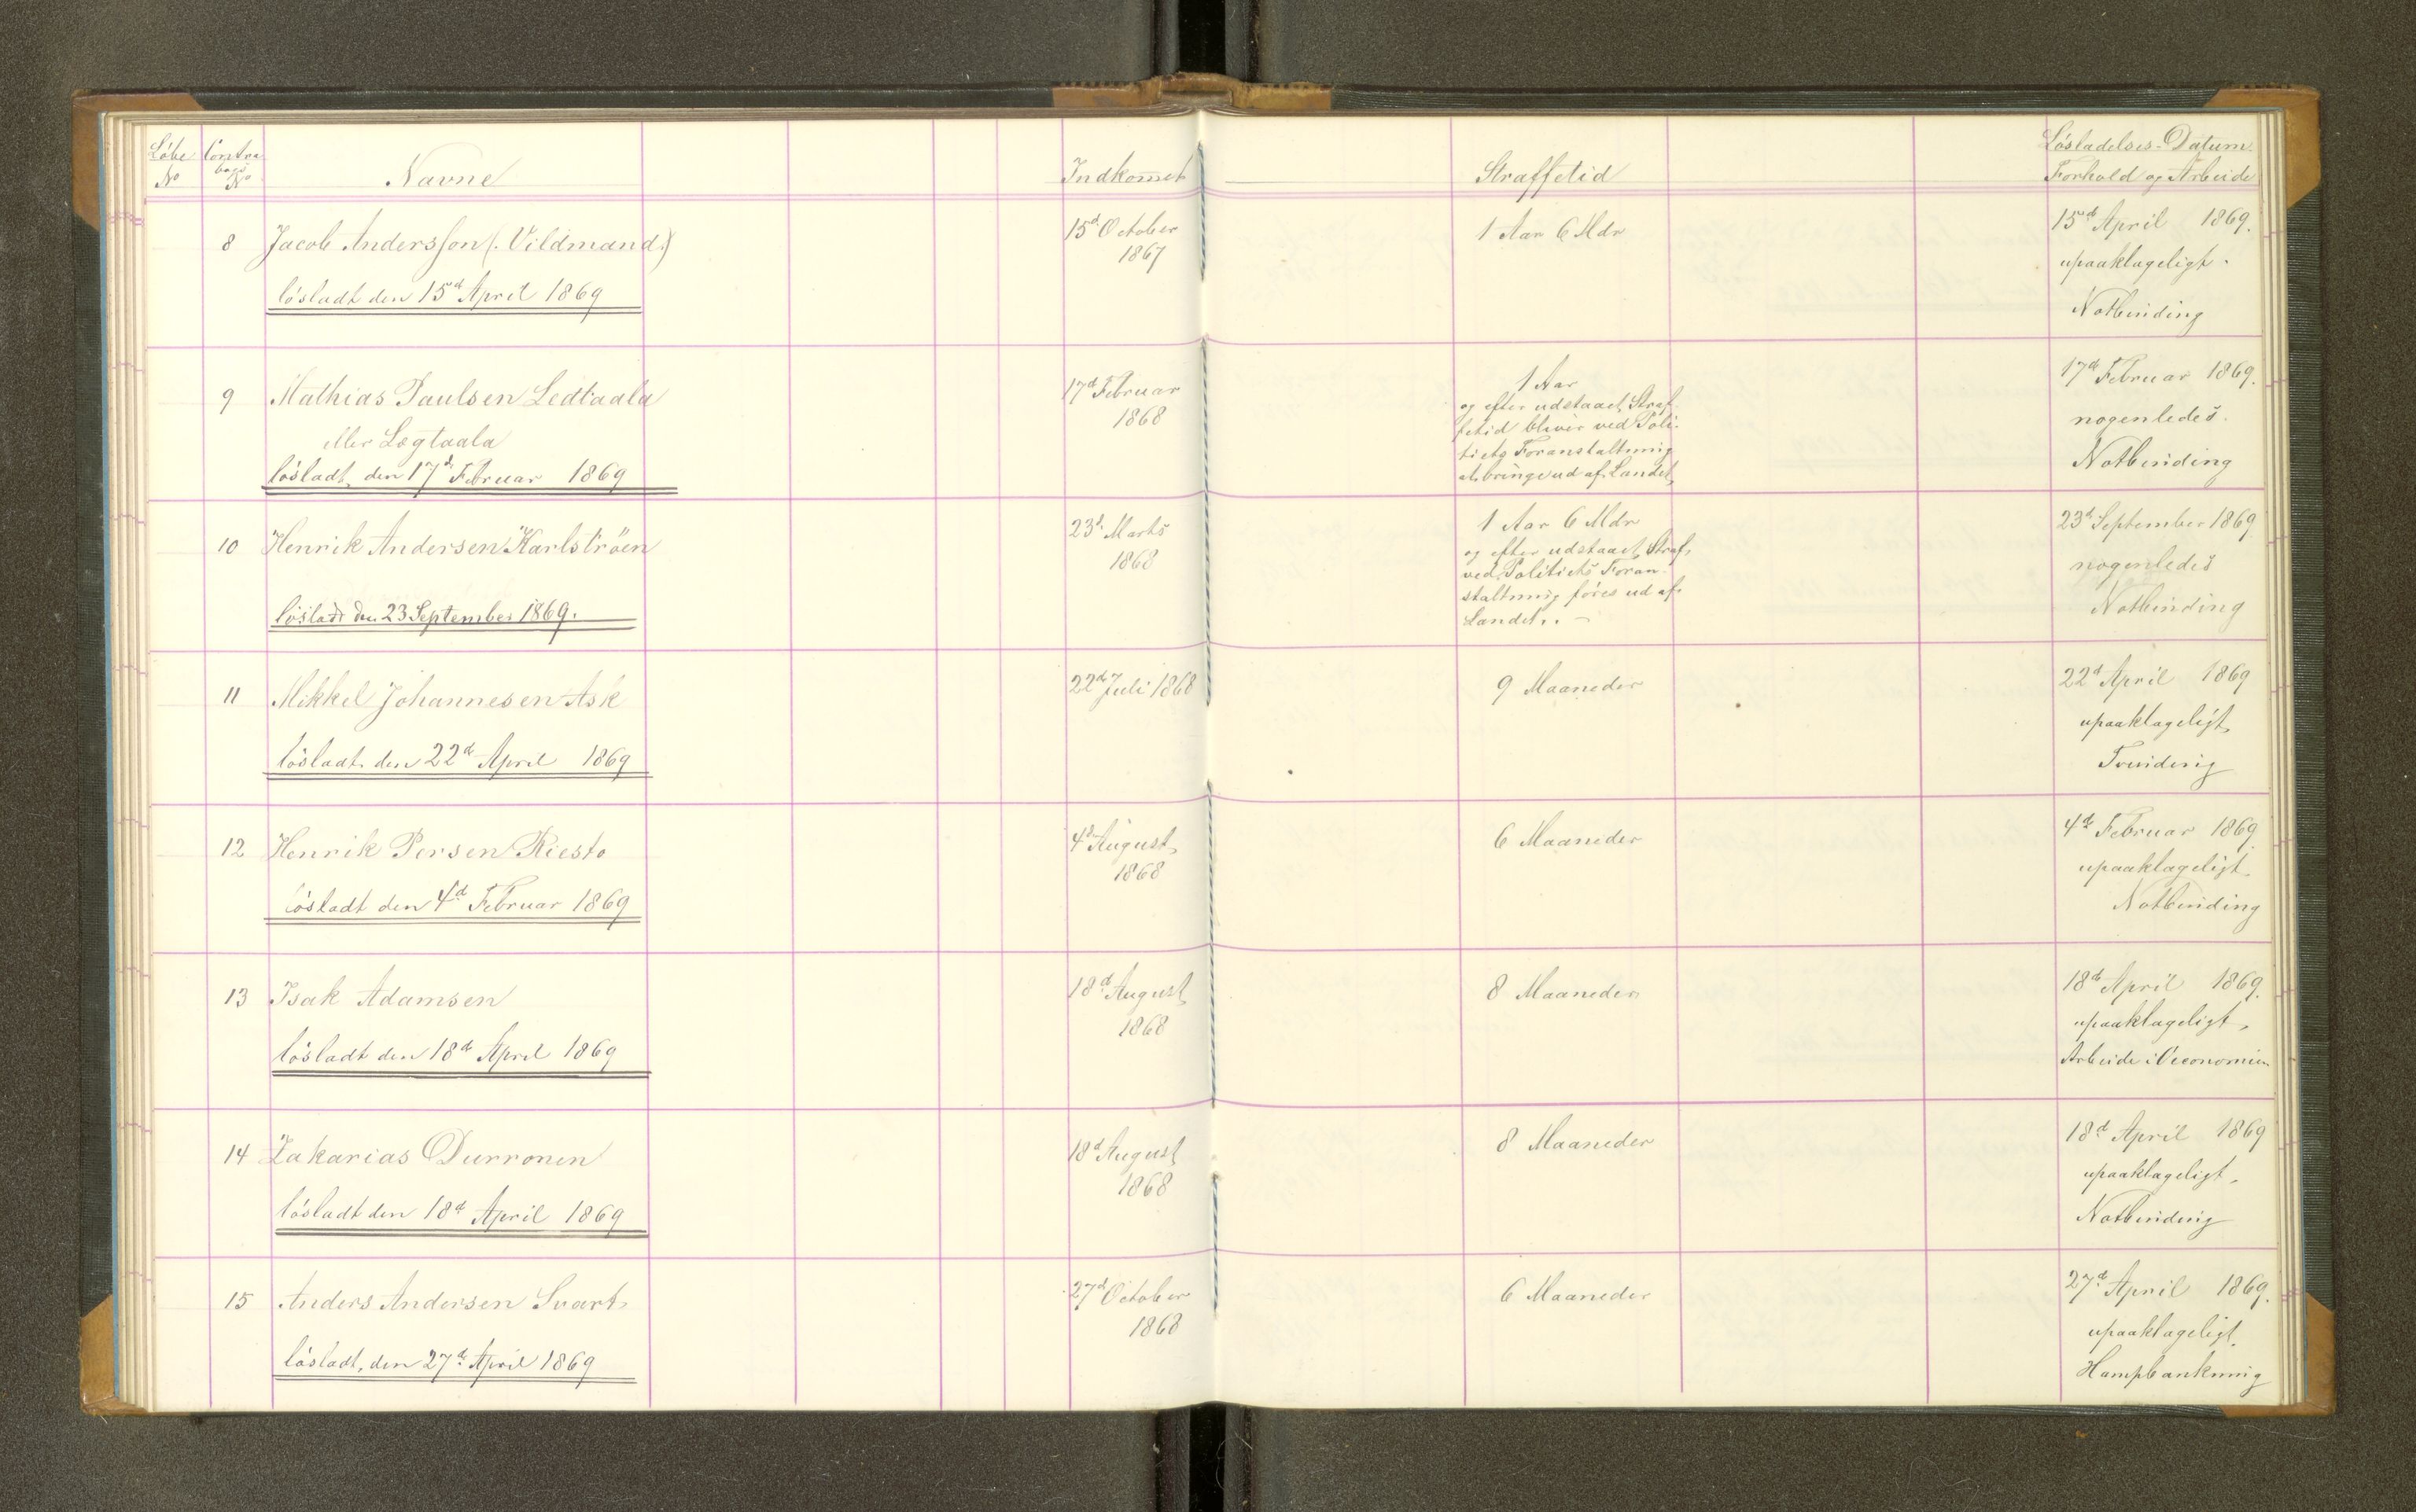 Løbe No
Contra bogs No
Navne
Indkommet
Straffetid
Løsladelses-Datum
Forhold og Arbeide
8 Jacob Andersson (: Vildmand:) 15d October 1 Aar 6 Mdr 15d April 1869.
1867 upaaklageligt.
løsladt den 15d April 1869 Notbinding
9 Mathias Paulsen Ledtaala 17d Februar 1 Aar 17d Februar 1869.
eller Løgtaala 1868 og efter udstaaet Straf- nogenledes.
fetid bliver ved Poli-
løsladt den 17d Februar 1869 titets Foranstaltning Notbinding
at bringe ud af Landet
10 Henrik Andersen Karlstrøen 23d Marts 1 Aar 6 Mdr 23d September 1869
1868 og efter udstaaet Straf nogenledes
ved Politiets Foran-
staltning føres ud af Notbinding
løsladt den 23 September 1869. Landet. . –
11 Mikkel Johannesen Ask 22d Juli 1868 9 Maaneder 22d April 1869
upaaklageligt
løsladt den 22d April 1869 Tvinding
12 Henrik Persen Riesto 4d August 6 Maaneder 4d Februar 1869.
1868 upaaklageligt
løsladt den 4d Februar 1869 Notbinding
13 Isak Adamsen 18d August 8 Maaneder 18d April 1869.
1868 upaaklageligt,
løsladt den 18d April 1869 Arbeide i Oeconomien
14 Zakarias Durronen 18d August 8 Maaneder 18d April 1869
1868 upaaklageligt,
løsladt den 18d April 1869 Notbinding
15 Anders Andersen Svart 27d October 6 Maaneder 27d April 1869.
1868 upaaklageligt.
løsladt, den 27d April 1869 Hampbankning